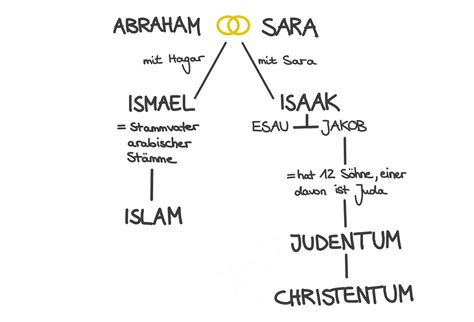 ABRAHAM SARA
mit Hagar mit Sara
ISMAEL ISAAK
= Stammvater ESAU JAKOB
arabischer
Stämme
= hat 12 Söhne, einer
davon ist Juda
ISLAM
JUDENTUM
CHRISTENTUM